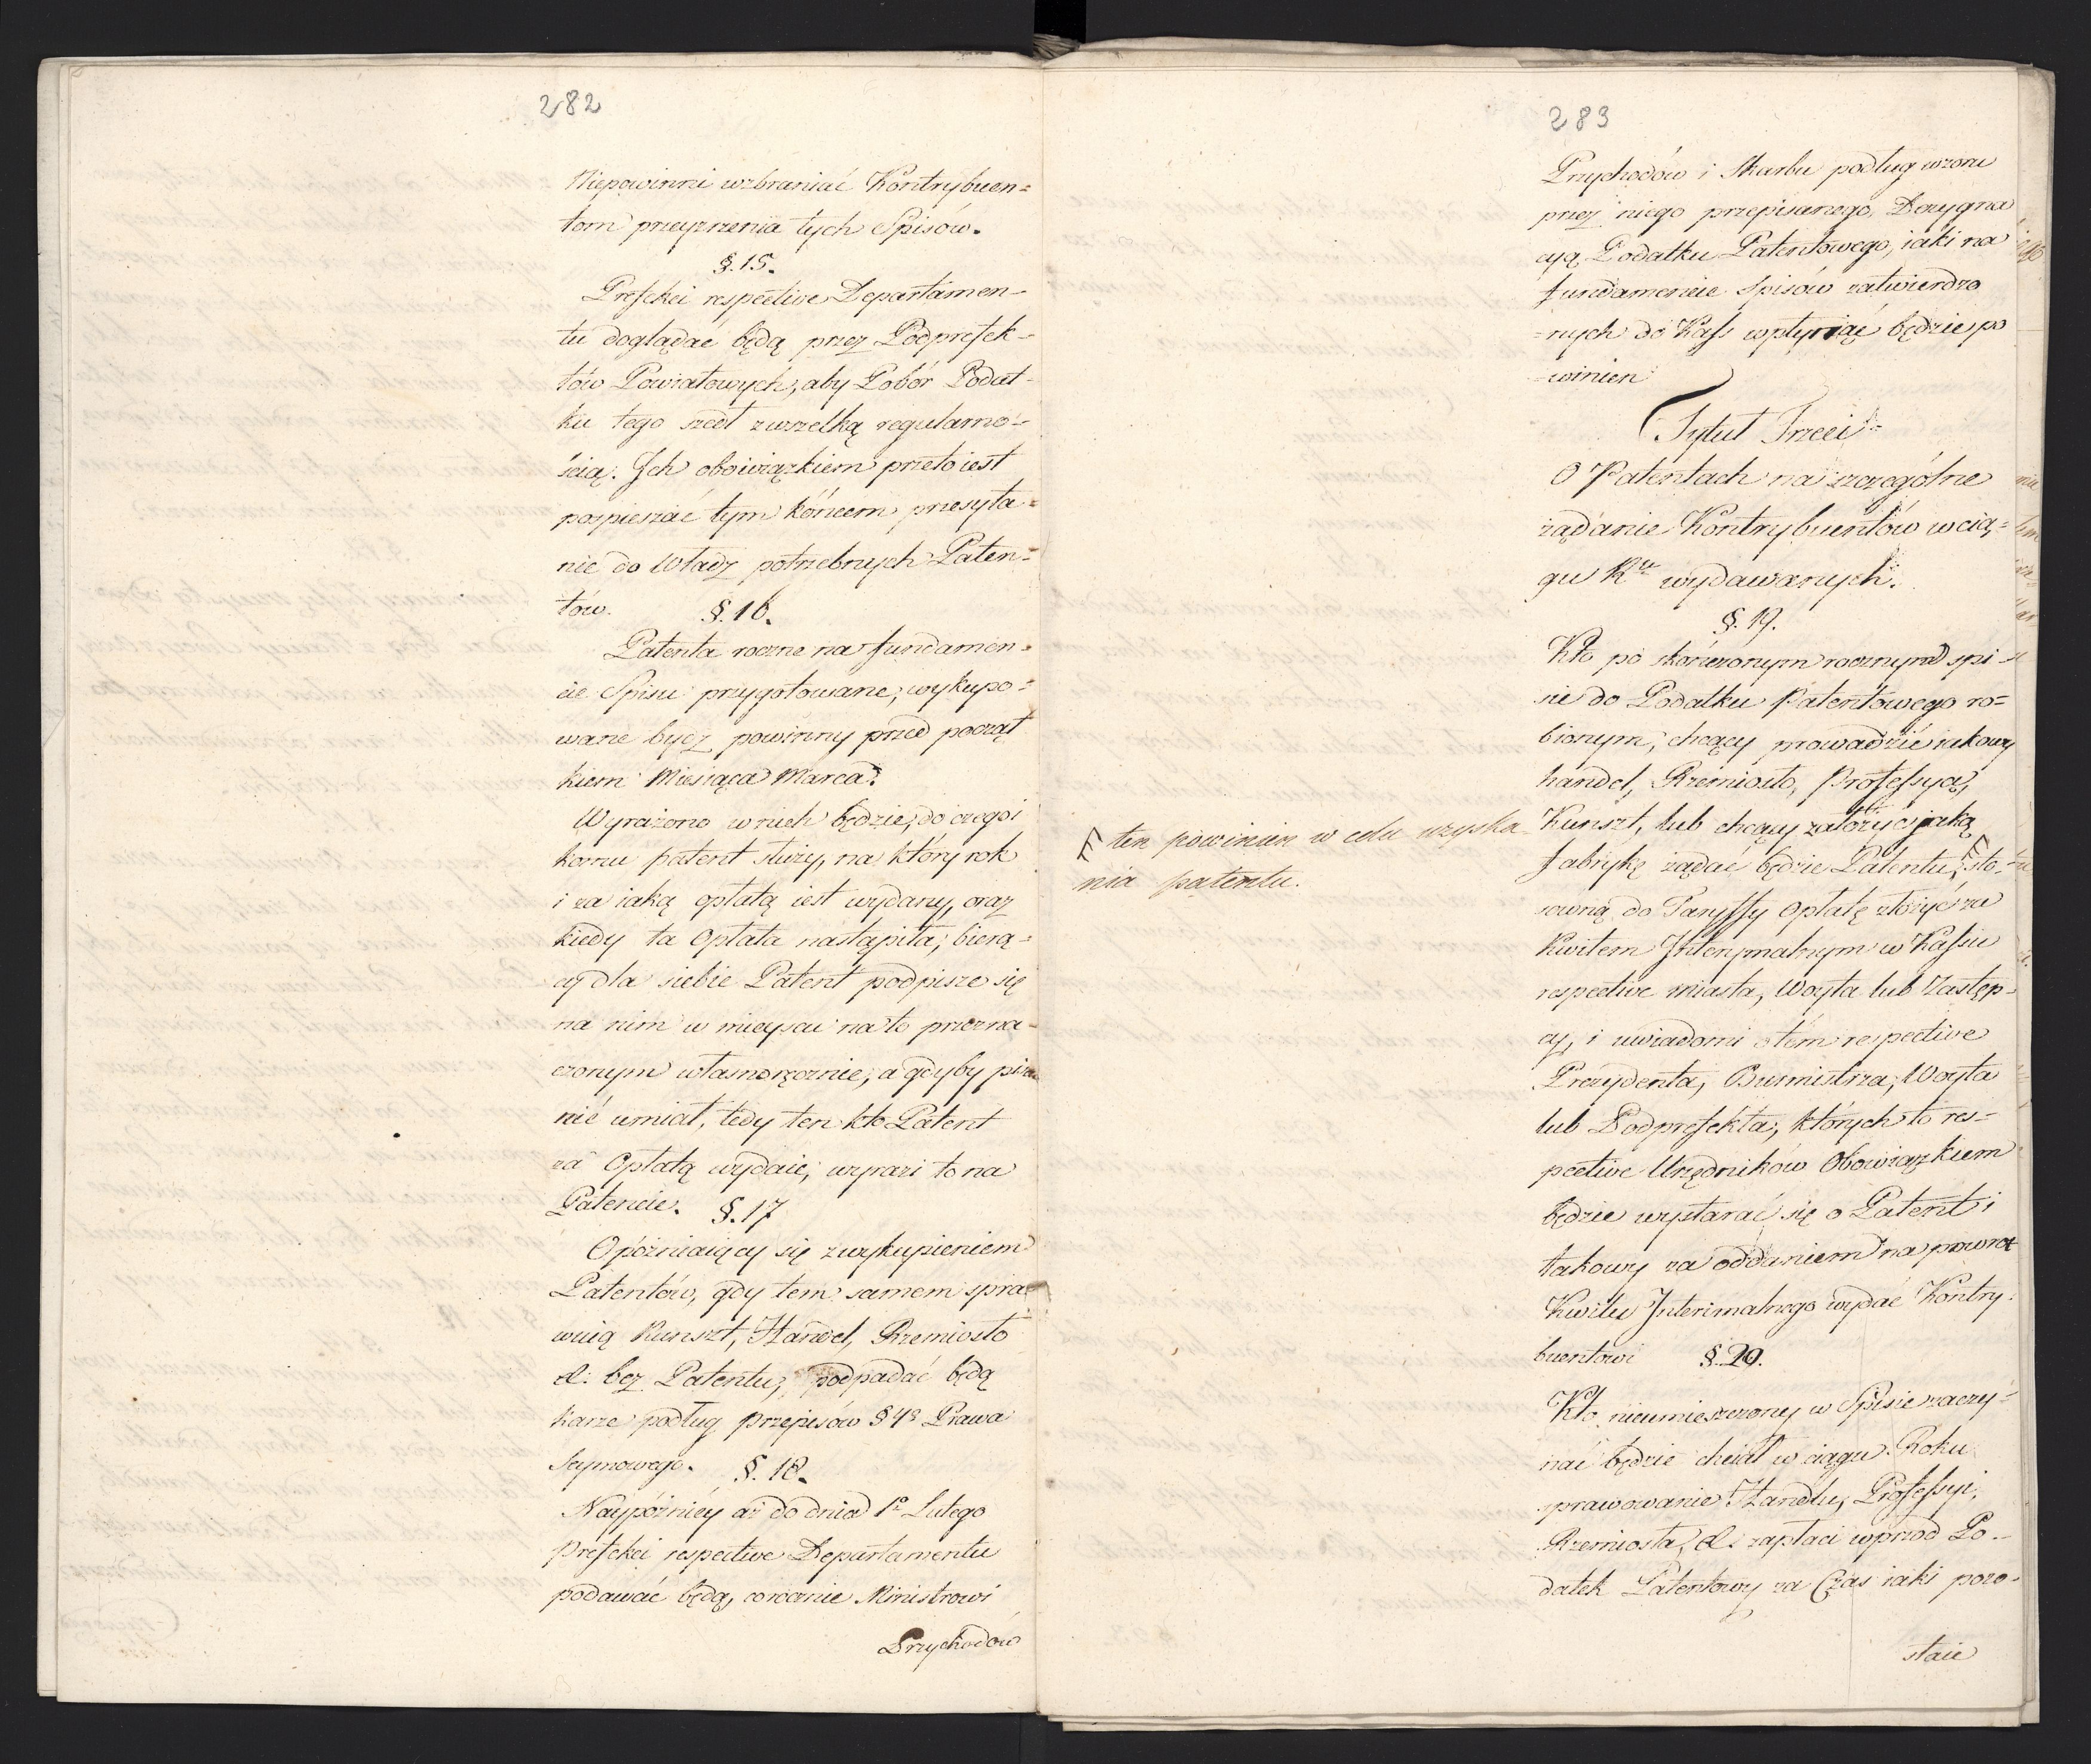 282
Niepowinni wzbraniać Kontrybuen=
tom przeyrzenia tych Spisów.
§. 15.
Prefekci respective Departamen-
tu doglądać będą przez Podprefek-
tów Powiatowych, aby Pobór Podat-
ku tego szedł zwszelką regularno-
ścią. Ich obowiązkiem przeto iest
pospieszać tym końcem przesyła-
nie do Władz potrzebnych Paten-
tów. §. 16.
Patenta roczne na fundamen-
cie Spisu przygotowane, wykupo-
wane bydz powinny przed począt
kiem Miesiąca Marca.
Wyrażono wnich będzie, do czego i
komu patent służy, na który rok
i za iaką opłatą iest wydany, oraz
kiedy ta Opłata nastąpiła; biorą-
cy dla siebie Patent podpisze się
na nim w mieyscu na to przezna-
czonym własnoręcznie, a gdyby pisa
nie umiał, tedy ten kto Patent
za Opłatą wydaie, wyrazi to na
Patencie. §. 17
Opóźniaiący się zwykupieniem
Patentów, gdy tem samem spra-
wuią Kunszt, Handel, Rzemiosło
&: bez Patentu, podpadać będą
karze podług przepisów § 4º Prawa
Seymowego. §. 18.
Naypóźniéy aż do dnia 1º Lutego
Prefekci respective Departamentu
podawać będą corocznie Ministrowi
Przychodów
283
Przychodów i Skarbu podług wzoru
przez niego przepisanego, Dezygna
cyą Podatku Patentowego, iaki na
fundamencie Spisów zatwierdzo
=nych do Kass wpłynąć będzie po
=winien
Tytuł Trzeci
O Patentach na szczególne
żądanie Kontrybuentów w cią=
gu Rku wydawanych.
§. 19.
Kto po skończonym rocznym spi-
sie do Podatku Patentowego ro=
bionym, chcący prowadzić iakowy
handel, Rzemiosło, Professyą,
Kunszt, lub chcący założyć jaką
Fabrykę żądać będzie Patentu, sto-
sowną do Taryffy Opłatę złożyć za
Kwitem Interymalnym w Kassie
respective miasta, Woyta lub Zastęp-
cy, i uwiadomi o tém respective
Prezydenta, Burmistrza, Woyta
lub Podprefekta, których to res-
pective Urzędników Obowiązkiem
będzie wystarać się o Patent i
takowy za oddaniem na powrót
Kwitu Interimalnego wydać Kontry-
buentowi §. 20.
Kto nieumieszczony w Spisie zaczy-
nać będzie chciał w ciągu Roku
sprawowanie Handlu, Professyi,
Rzemiosła, &. zapłaci wprzod Po-
datek Patentowy za Czas iaki pozo-
staie
ten powinien w celu uzyska
nia patentu.